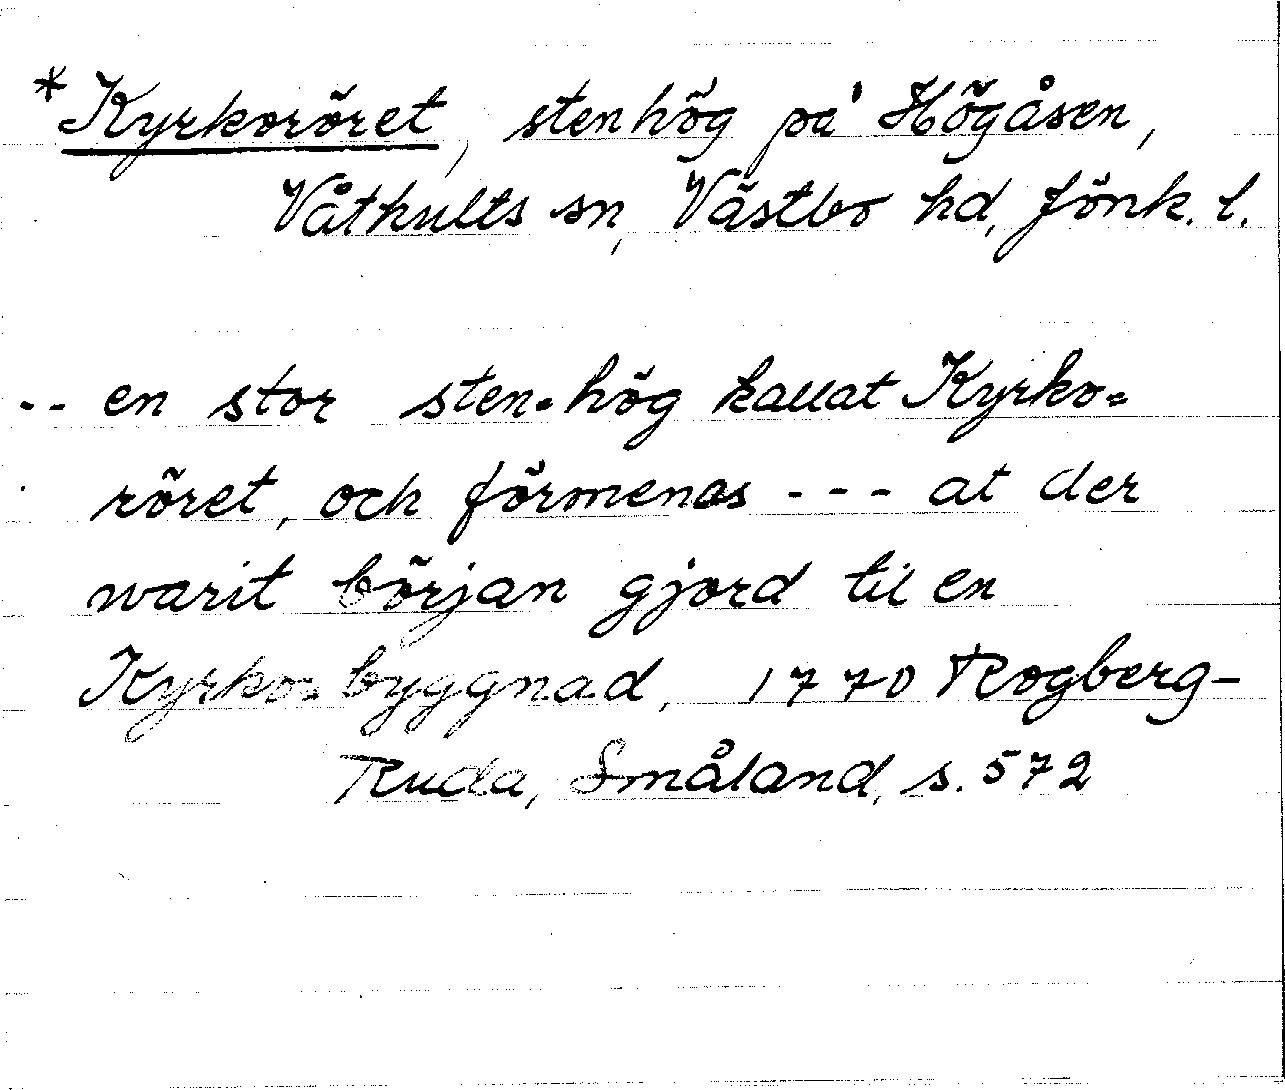 *Kyrkoröret, stenhög på Högåsen,
Våthults sn, Västbo hd, Jönk. l.
-- en stor sten-hög kallat Kyrko=
röret, och förmenas --- at der
warit början gjord til en
Kyrko=byggnad, 1770 Rogberg-
Ruda, Småland, s. 572